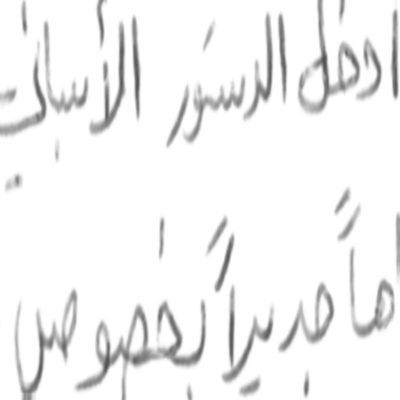 ادخل الدستور الأسباني
اماً جديداً بخصوص